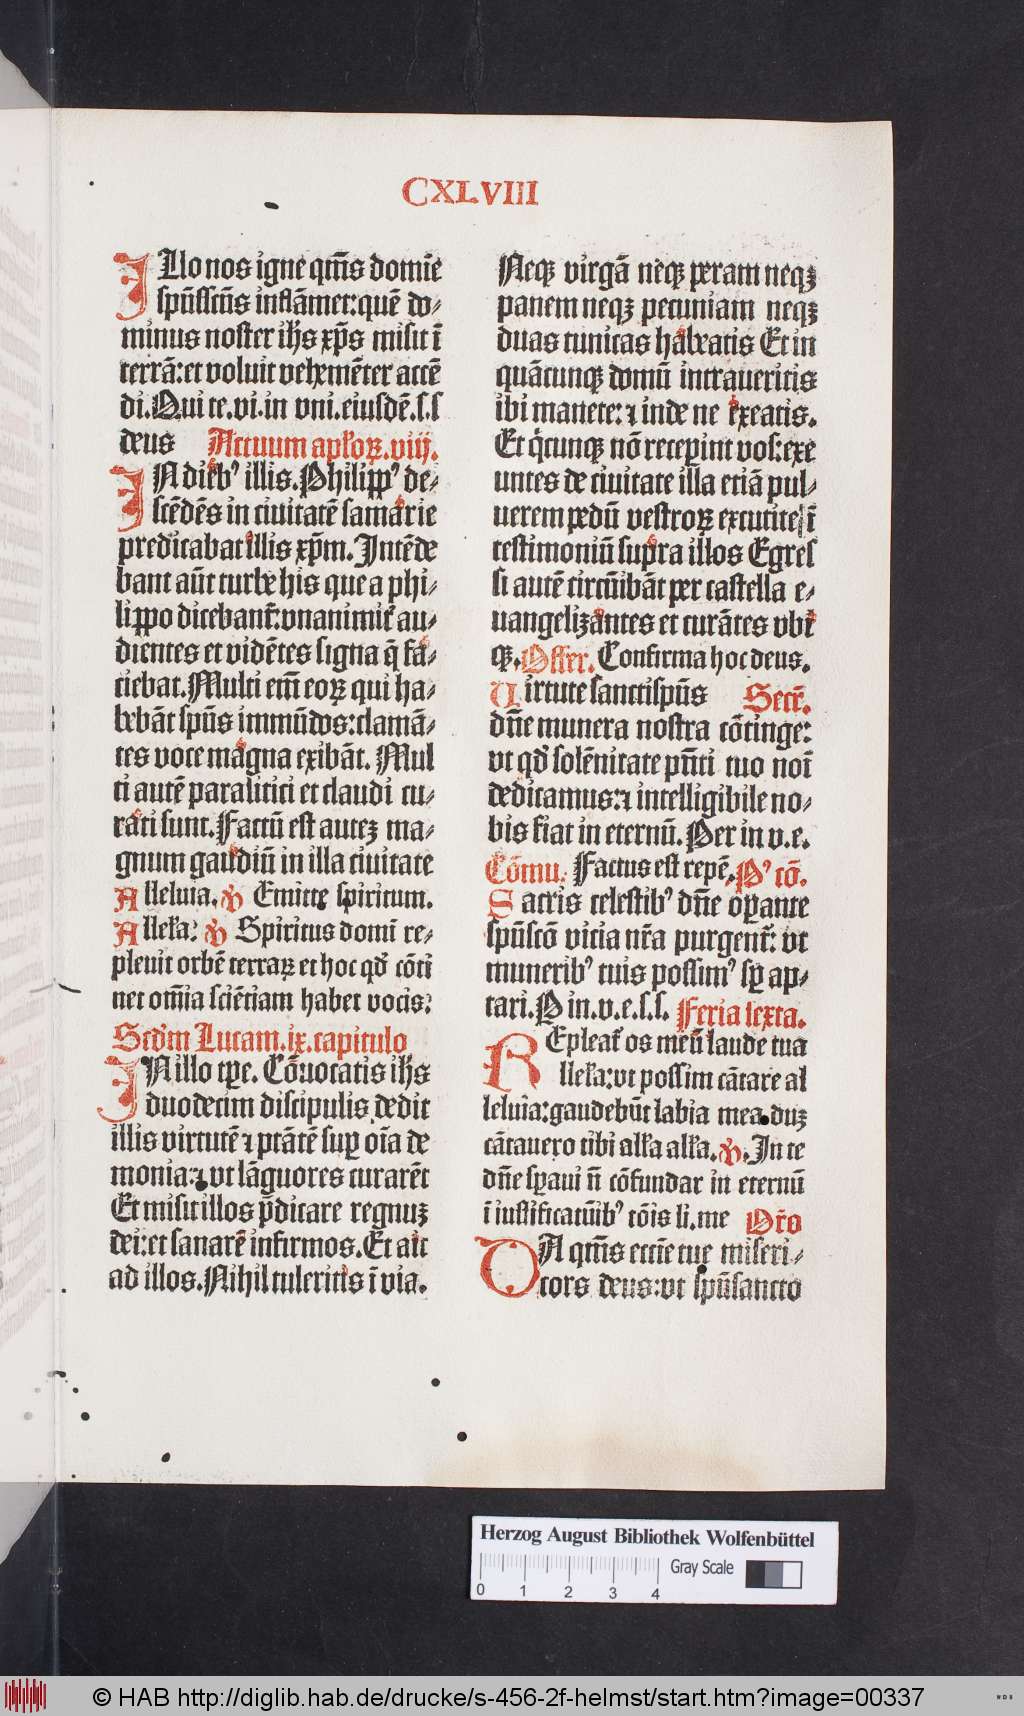 CXLVIII
ILlo nos igne qm̄s domīe
spūssctūs inflāmet:quē do-
minus noster ihs xp̄s misit ī
terrā:et voluit vehemēter accē
di.Qui te.vi.in vni.eiusdē.s.s
deus Actuum aplʼoꝝ.viij.
IN diebꝰ illis.Philippꝰ de-
scēdēs in ciuitatē samarie
predicabat illis xp̄m.Intēde
bant aūt turbe his que a phi-
lippo dicebant̄:vnanimit̄ au-
dientes et vidētes signa q̄ fa-
ciebat.Multi em̄ eoꝝ qui ha-
bebāt spūs immūdos:clamā-
tes voce magna exibāt. Mul
ti autē paralitici et claudi cu-
rati sunt.Factū est auteʒ ma-
gnum gaudiū in illa ciuitate
Alleluia. ℣ Emitte spiritum.
Allelʼa: ℣ Spiritus domī re-
pleuit orbē terraꝝ et hoc qd̓ cōti
net om̄ia sciētiam habet vocis:
Scd̓m Lucam.ix.capitulo
IN illo tp̄e. Cōuocatis ihs
duodecim discipulis dedit
illis virtutē ⁊ ptātē suꝑ oīa de
monia:⁊ vt lāguores curarēt
Et misit illos p̄dicare regnuʒ
dei:et sanarē infirmos.Et ait
ad illos.Nihil tuleritis ī via.
Neqꝫ virgā neqꝫ peram neqꝫ
panem neqꝫ pecuniam neqꝫ
duas tunicas habeatis Et in
quācunqꝫ domū intraueritis
ibi manete: ⁊ inde ne exeatis.
Et q̇cunqꝫ nō receꝑint vos:exe
untes de ciuitate illa etiā pul-
uerem pedū vestroꝝ excutite ī
testimoniū supra illos Egres
si autē circūibāt per castella e-
uangelizantes et curātes vbi
qꝫ. Offer. Confirma hoc deus.
Virtute sanctispūs Secr̄.
dn̄e munera nostra cōtinge:
vt qd̓ solēnitate pn̄ti tuo noī
dedicamus:⁊ intelligibile no-
bis fiat in eternū.Per in v.e.
Cōmu. Factus est repē. Pꝰ cō.
Sacris celestibꝰ dn̄e oꝑante
spūsctō vicia nr̄a purgent̄: vt
muneribꝰ tuis possimꝰ sꝑ ap-
tari.P in.v.e.s.s. Feria sexta.
REpleat̄ os meū laude tua
llelʼa:vt possim cātare al
leluīa:gaudebūt labia mea duʒ
cātauero tibi allʼa allʼa. ℣.In te
dn̄e sꝑaui n̄ cōfundar in eternū
ī iustificatūibꝰ tōis li.me Or̄o
DA qm̄s eccīe tue miseri-
cors deus:vt spūsancto
Herzog August Bibliothek Wolfenbüttel
Gray Scale
0 1 2 3 4
© HAB http://diglib.hab.de/drucke/s-456-2f-helmst/start.htm?image=00337